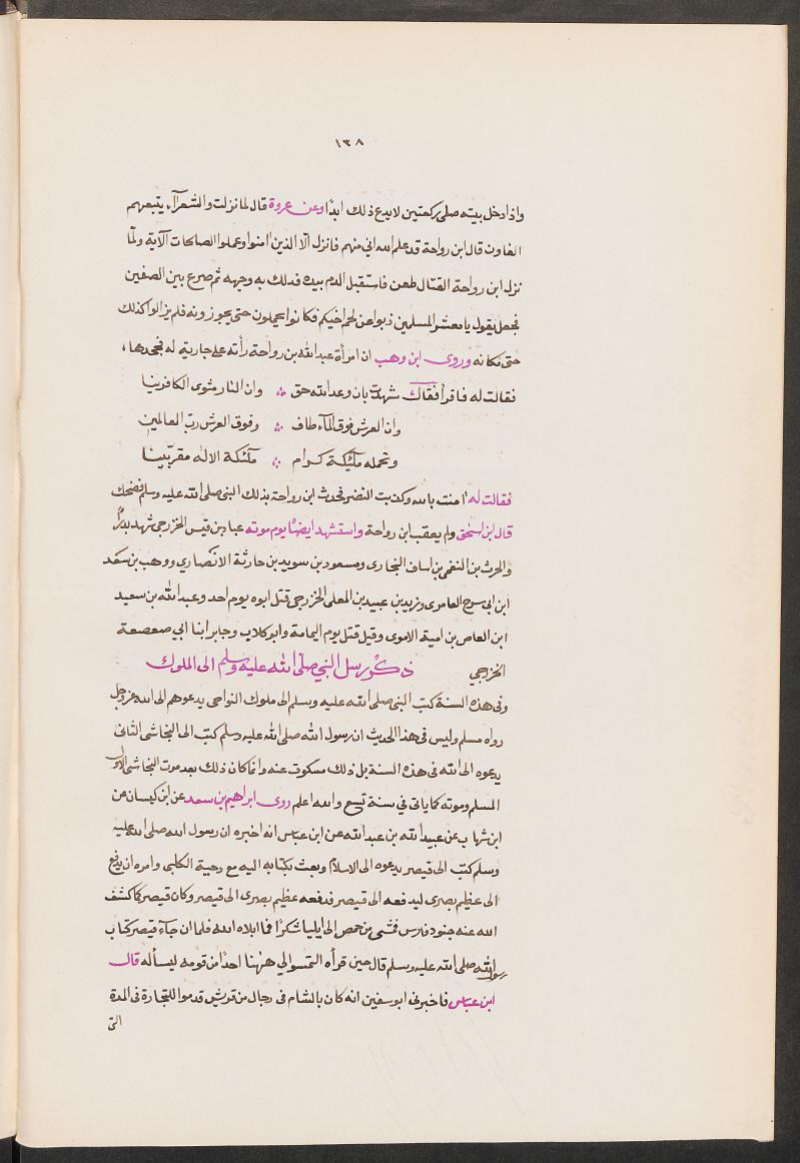 ١٣٨
واذا دخل بيته صلى ركعتين لا يدع ذلك ابدًا وعن عروة قال لما نزلت والشعرآء يتبعهم
الغاون قال ابن رواحة قد علم الله انى منهم فانزل الّا الذين اٰمنوا وعملوا الصالحات الآية ولمّا
نزل ابن رواحة القتال طعن فاستقبل الدم بيده فدلك به وجهه ثم صرع بين الصفين
فجعل يقول يا معشر المسلمين ذبوا عن لحم اخيكم فكانوا يحملون حتى يجوزونه فلم يزالوا كذلك
حتى مكانه وروى ابن وهب ان امرأة عبد الله بن رواحة رأته على جارية له فجحدها،
فقالت له فاقرأ فقال شهدت بان وعد الله حق ∴ وان النار مثوى الكافرينا
وان العرش فوق المآء طاف ∴ وفوق العرش ربّ العالمين
وتحمله ملٰئكة كرام ∴ ملٰئكة الاله مقرّبينا
فقالت له اٰمنت بالله وكذبت النضر فحدث ابن رواحة بذلك النبى صلى الله عليه وسلم فضحك
قال ابن اسحٰق ولم يعقب ابن رواحة واستشهد ايضًا يوم موته عباد بن قيس الخزرجى شهد بدرًا
والحرث بن النعمٰن بن اساف النجارى ومسعود بن سويد بن حارثة الانصاري ووهب بن سعد
ابن ابى سرح العامرى وزيد بن عبيد بن المعلى الخزرجى قتل ابوه يوم احد وعبد الله بن سعيد
ابن العاص بن امية الاموى وقيل قتل يوم اليمامة وابو كلاب وجابر ابنا ابي صعصعة
الخزرجي ذكر رسل النبي صلّى الله عليه وسلم الى الملوك
وفى هذه السنة كتب النبى صلى الله عليه وسلم الى ملوك النواحى يدعوهم الى الله عزوجل
رواه مسلم وليس فى هذا الحديث ان رسول الله صلى الله عليه وسلم كتب الى النجاشى الثانى
يدعوه الى الله فى هذه السنة بل ذلك مسكوت عنه وانما كان ذلك بعد موت النجاشى الاول
المسلم وموته كما ياتى فى سنة تسع والله اعلم روى ابراهيم بن سعد عن ابن كيسان عن
ابن شهاب عن عبيد الله بن عبد الله عن ابن عباس انه اخبره ان رسول الله صلى الله عليه
وسلم كتب الى قيصر يدعوه الى الاسلام وبعث بكتابه اليه مع دحية الكلبى وامره ان يدفع
الى عظيم بصرى ليدفعه الى قيصر فدفعه عظيم بصرى الى قيصر وكان قيصر لما كشف
الله عنه جنود فارس فمشى من حمص الى ايليا شكرًا فما ابلاه الله فلما ان جآء قيصر كتاب
رسول الله صلى الله عليه وسلم قال حين قرأه التمسوا لي ههنا احدًا من قومه ليسأله قال
ابن عباس فاخبرنى ابو سفين انه كان بالشام فى رجال من قريش قدموا للتجارة فى المدة
التى